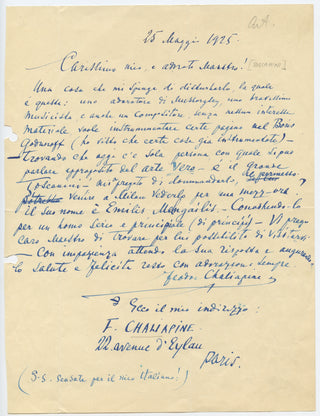 A.A.
25 Maggio 1925.
Carissimo mio, e adorato Maestro! [TOSCANINI]
Una cosa che mi spinge di disturbarlo, la quale
è questa: uno adoratore di Mussorgsky, uno bravissimo
musicista e anche un compositore senza nessun interesse
materiale vuole instrumentare certe pagine nel Boris
Godunoff (ho visto che certe cose già instrumentate) —
Trovando che oggi c'è sola persona con quale si può
parlare appoggiato del arte vero — è il grande
Toscanini — mi pregato di domandarli, permesso
potrebbe venire a Milan vederlo per una mezz'ora
il suo nome è Emilis Mangailis. Conoscendolo
per un homo serio e principiale (di principi) — Vi prego
caro Maestro di trovare per lui possibilità di visitarvi
— Con impazienza attendo la sua risposta e augurandovi
la salute e felicità resto con adorazione sempre
Feodor Chaliapine
Ecco il mio indirizzo:
F. CHALIAPINE.
22 avenue d'Eylau
Paris.
(S.S. Scusate per il mio italiano!)